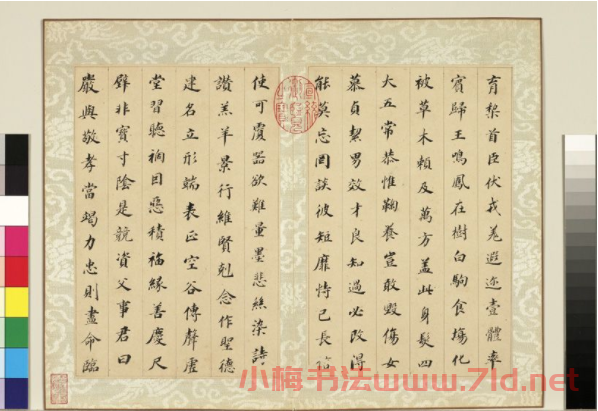 育黎首臣伏戎羌遐迩壹體率
賓歸王鳴鳳在樹白駒食場化
被草木賴及萬方蓋此身髮四
大五常恭惟鞠養豈敢毀傷女
慕貞絜男效才良知過必改得
能莫忘罔談彼短靡恃己長信
使可覆器欲難量墨悲絲染詩
讚羔羊景行維賢剋念作聖德
建名立形端表正空谷傳聲虛
堂習聽禍因惡積福緣善慶尺
璧非寶寸陰是競資父事君曰
嚴與敬孝當竭力忠則盡命臨
小梅书法www.7ld.net